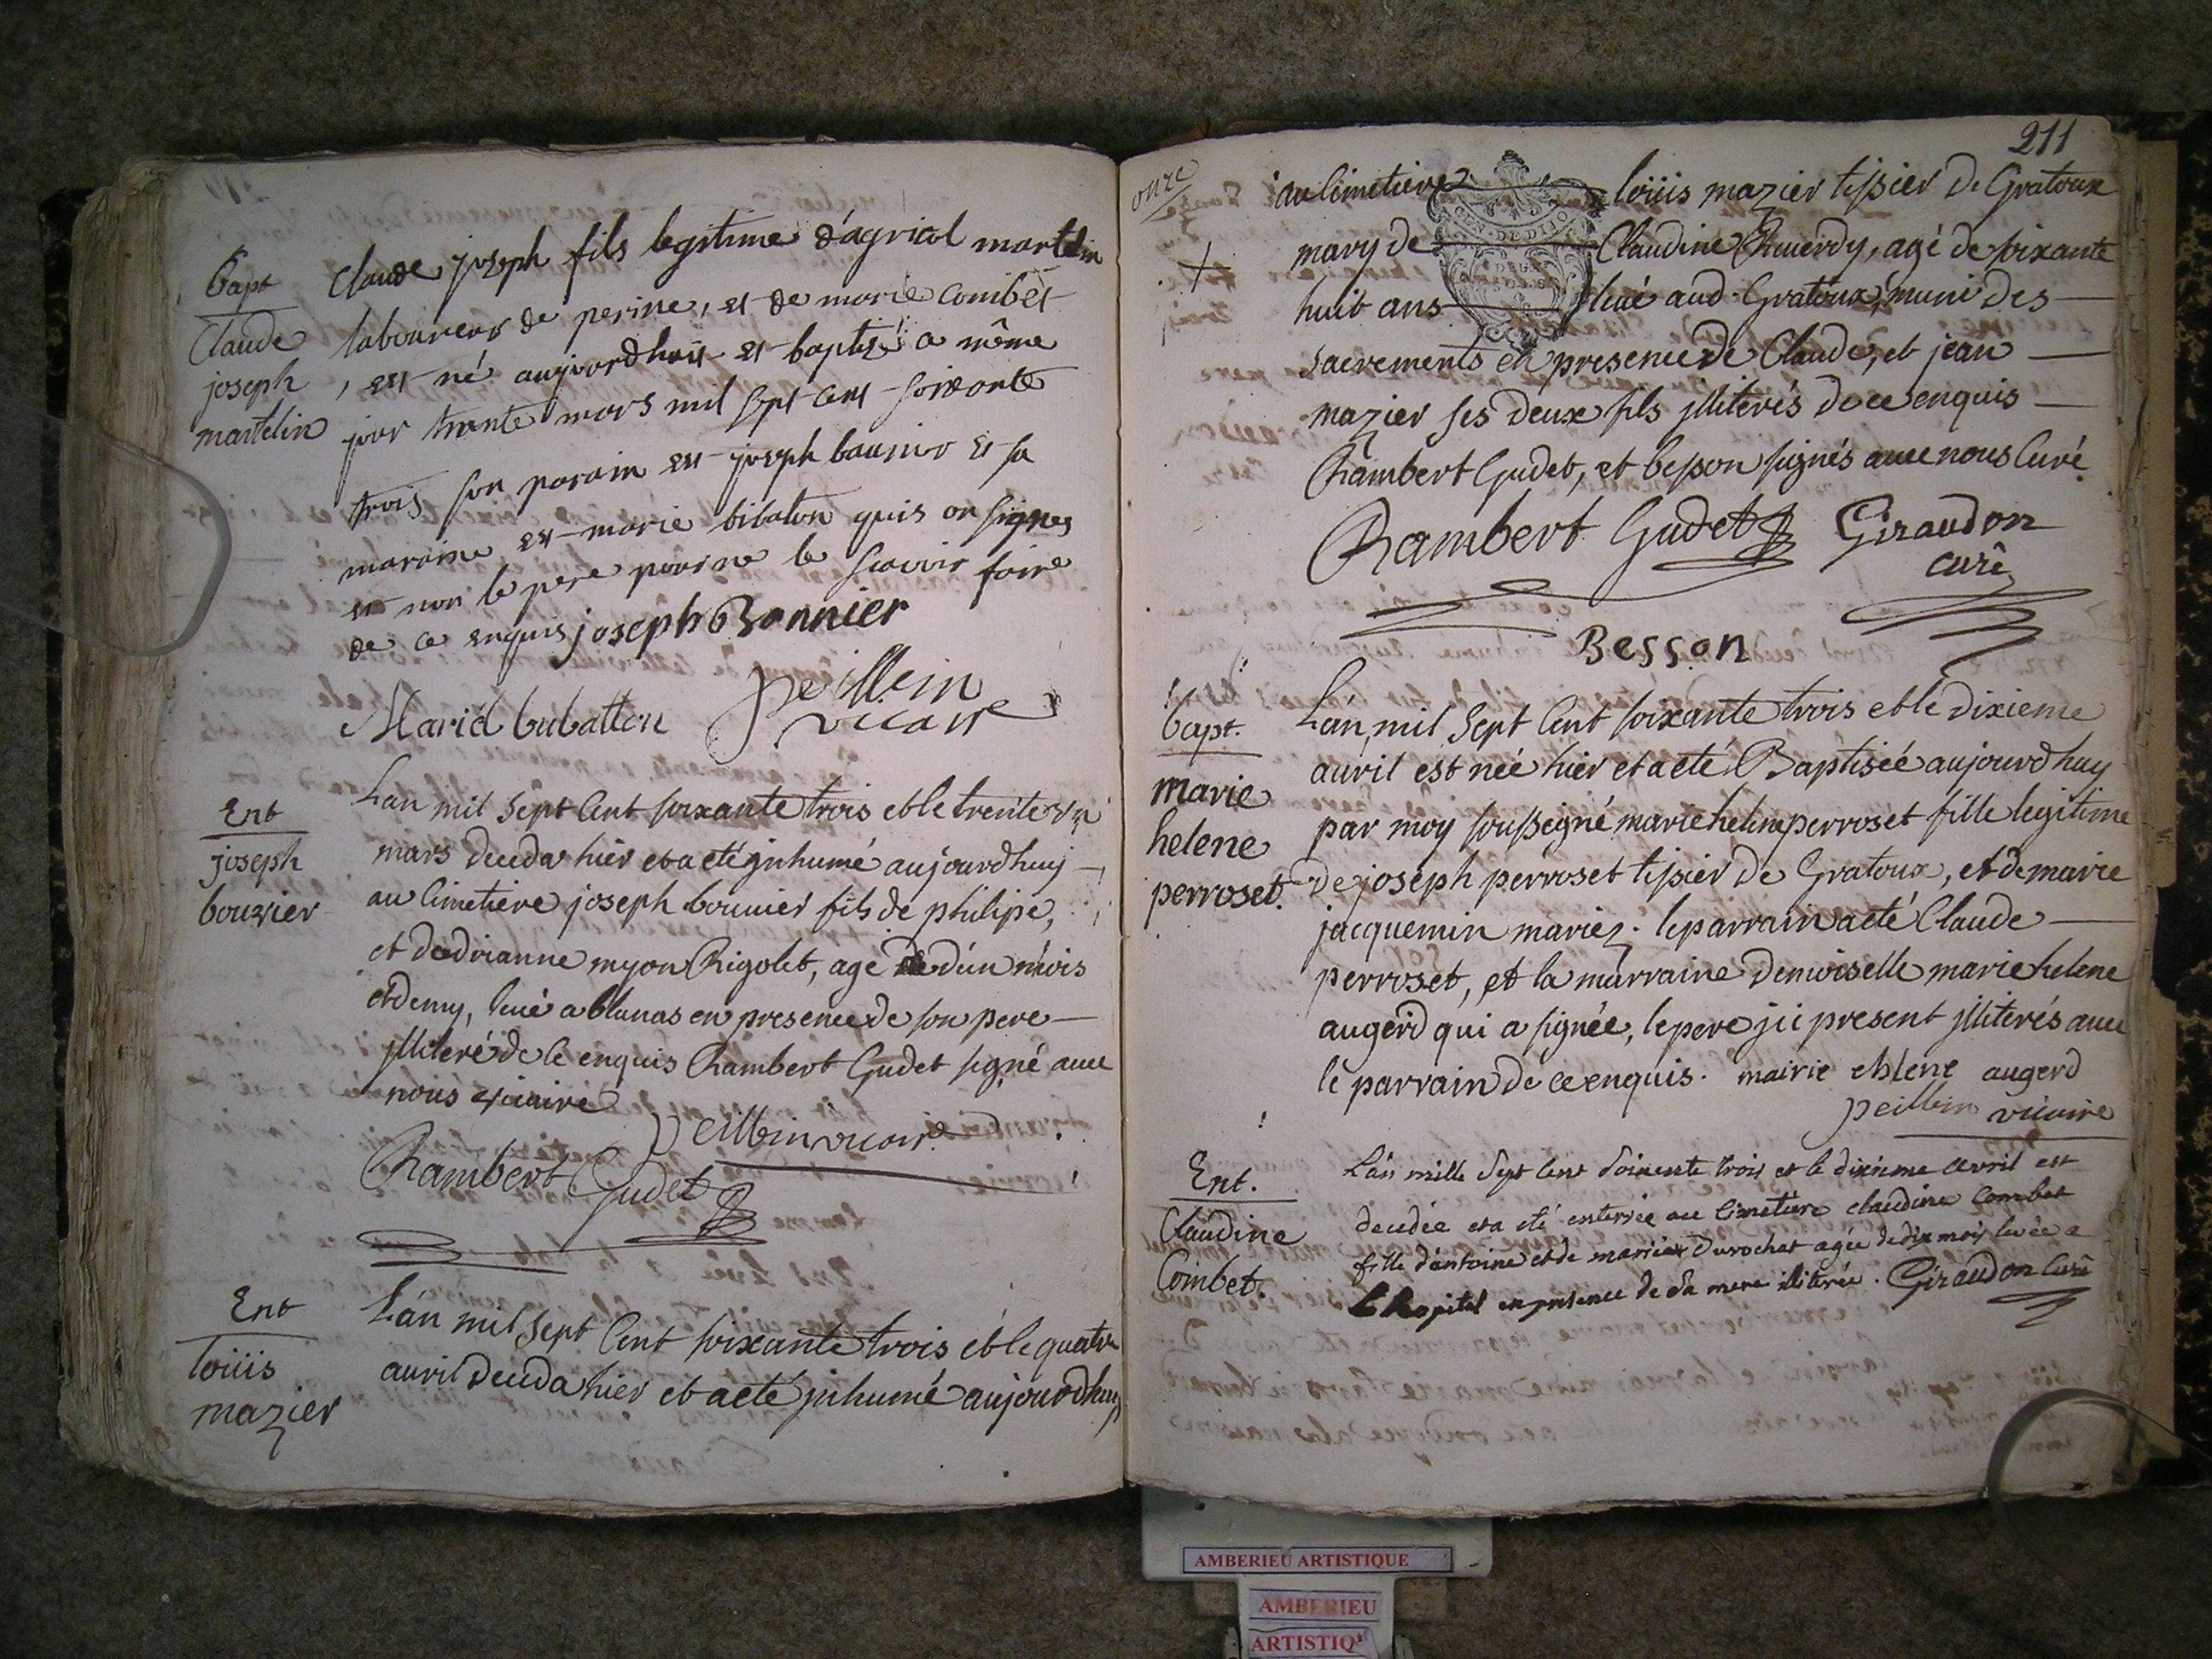 Bapt
Claude
joseph
martelin
Claude joseph fils legitime d'agricol martelin
laboureur de perine, et de marie Combet
, est né aujourdhuit et baptisé a même
jour trante mars mil sept cent soixante
trois son parain est joseph baunier et sa
maraine est marie bibaton quis on signes
et non le pere pour ne le scavoir faire
de ce enquis joseph Bonnier
Marie bubatton peillein
vicaire
Ent
joseph
bouvier
L'an mil sept Cent soixante trois et le trente un
mars deceda hier et a eté jnhumé aujourdhuy
au Cimetiere joseph bouvier fils de philipe,
et dadrianne myon Rigolet, agé d'un mois
et demy, levé a blanas en presence de son pere
jlliteré de Ce enquis Rambert Gudet signé avec
nous vicaire
peillein vicaire
Rambert Gudet
Ent
loüis
mazier
L'an mil sept Cent soixante trois et le quatre
avril deceda hier et a eté jnhumé aujourdhuy
211
onze
au Cimetiere loüis mazier tissier de Gratoux
GEN. DE DIJON
mary de Claudine Chuerdy, agé de soixante
huit ans levé aud. Gratoux, muni des
sacrements en presence de Claude, et jean
mazier ses deux fils jlliterés de ce enquis
Rambert Gudet, et besson signés avec nous Curé
Rambert Gudet Giraudon
curé
Besson
bapt.
marie
helene
perroset.
L'an mil sept Cent soixante trois et le dixieme
avril est née hier et a eté Baptisée aujourdhuy
par moy soussigné marie helene perroset fille legitime
de joseph perroset tissier de Gratoux, et de marie
jacquemin mariez. le parrain a eté Claude
perroset, et la marraine demoiselle marie helene
augerd qui a signée, le pere jci present jlliterés avec
le parrain de ce enquis. mairie ehlene augerd
peillein vicaire
Ent.
Claudine
Combet.
L'an mille Sept Cent Soixente trois et le dixieme avril est
decedée et a eté enterrée au Cimetiere claudine Combet
fille d'antoine et de mariée Durochat agée de dix mois levée a
L'hopital en presence de Sa mere illiterée. Giraudon Curé
AMBERIEU ARTISTIQUE
AMBERIEU
ARTISTIQ